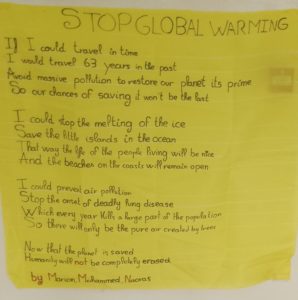 STOP GLOBAL WARMING
If I could travel in time
I would travel 63 years in the past
Avoid massive pollution to restore our planet its prime
So our chances of saving it won't be the last
I could stop the melting of the ice
Save the little islands in the ocean
That way the life of the people living will be nice
And the beaches on the coasts will remain open
I could prevent air pollution
Stop the onset of deadly lung disease
Which every year kills a large part of the population
So there will only be the pure air created by trees
Now that the planet is saved
Humanity will not be completely erased
by Marion, Mohammed,